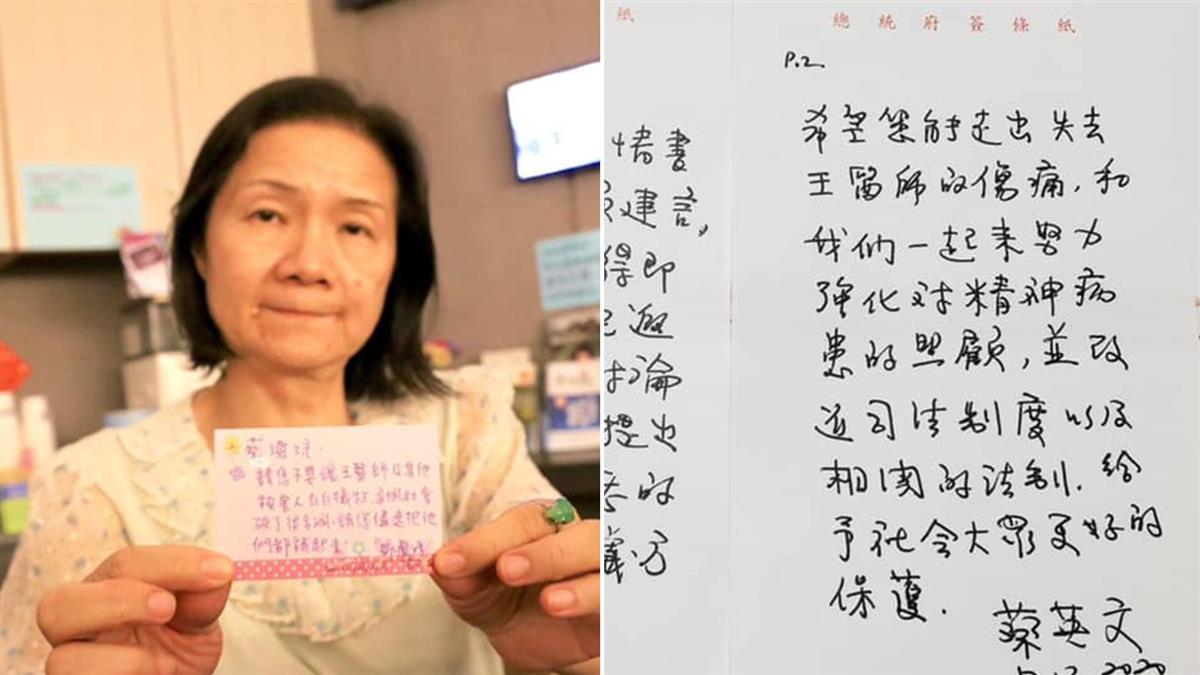 蔡總統:
請您不要讓王醫師及其他
被害人白白犧牲,這個社會
破了很多洞,請您儘速把他
們都補起來!
紙
情書
建言,
得即
論
提出
的
方
總統府簽條紙
P.2.
希望您能走出失去
王醫師的傷痛,和
我們一起來努力
強化對精神病
患的照顧,並改
進司法制度以及
相關的法制,給
予社會大眾更好的
保護.
蔡英文
2020